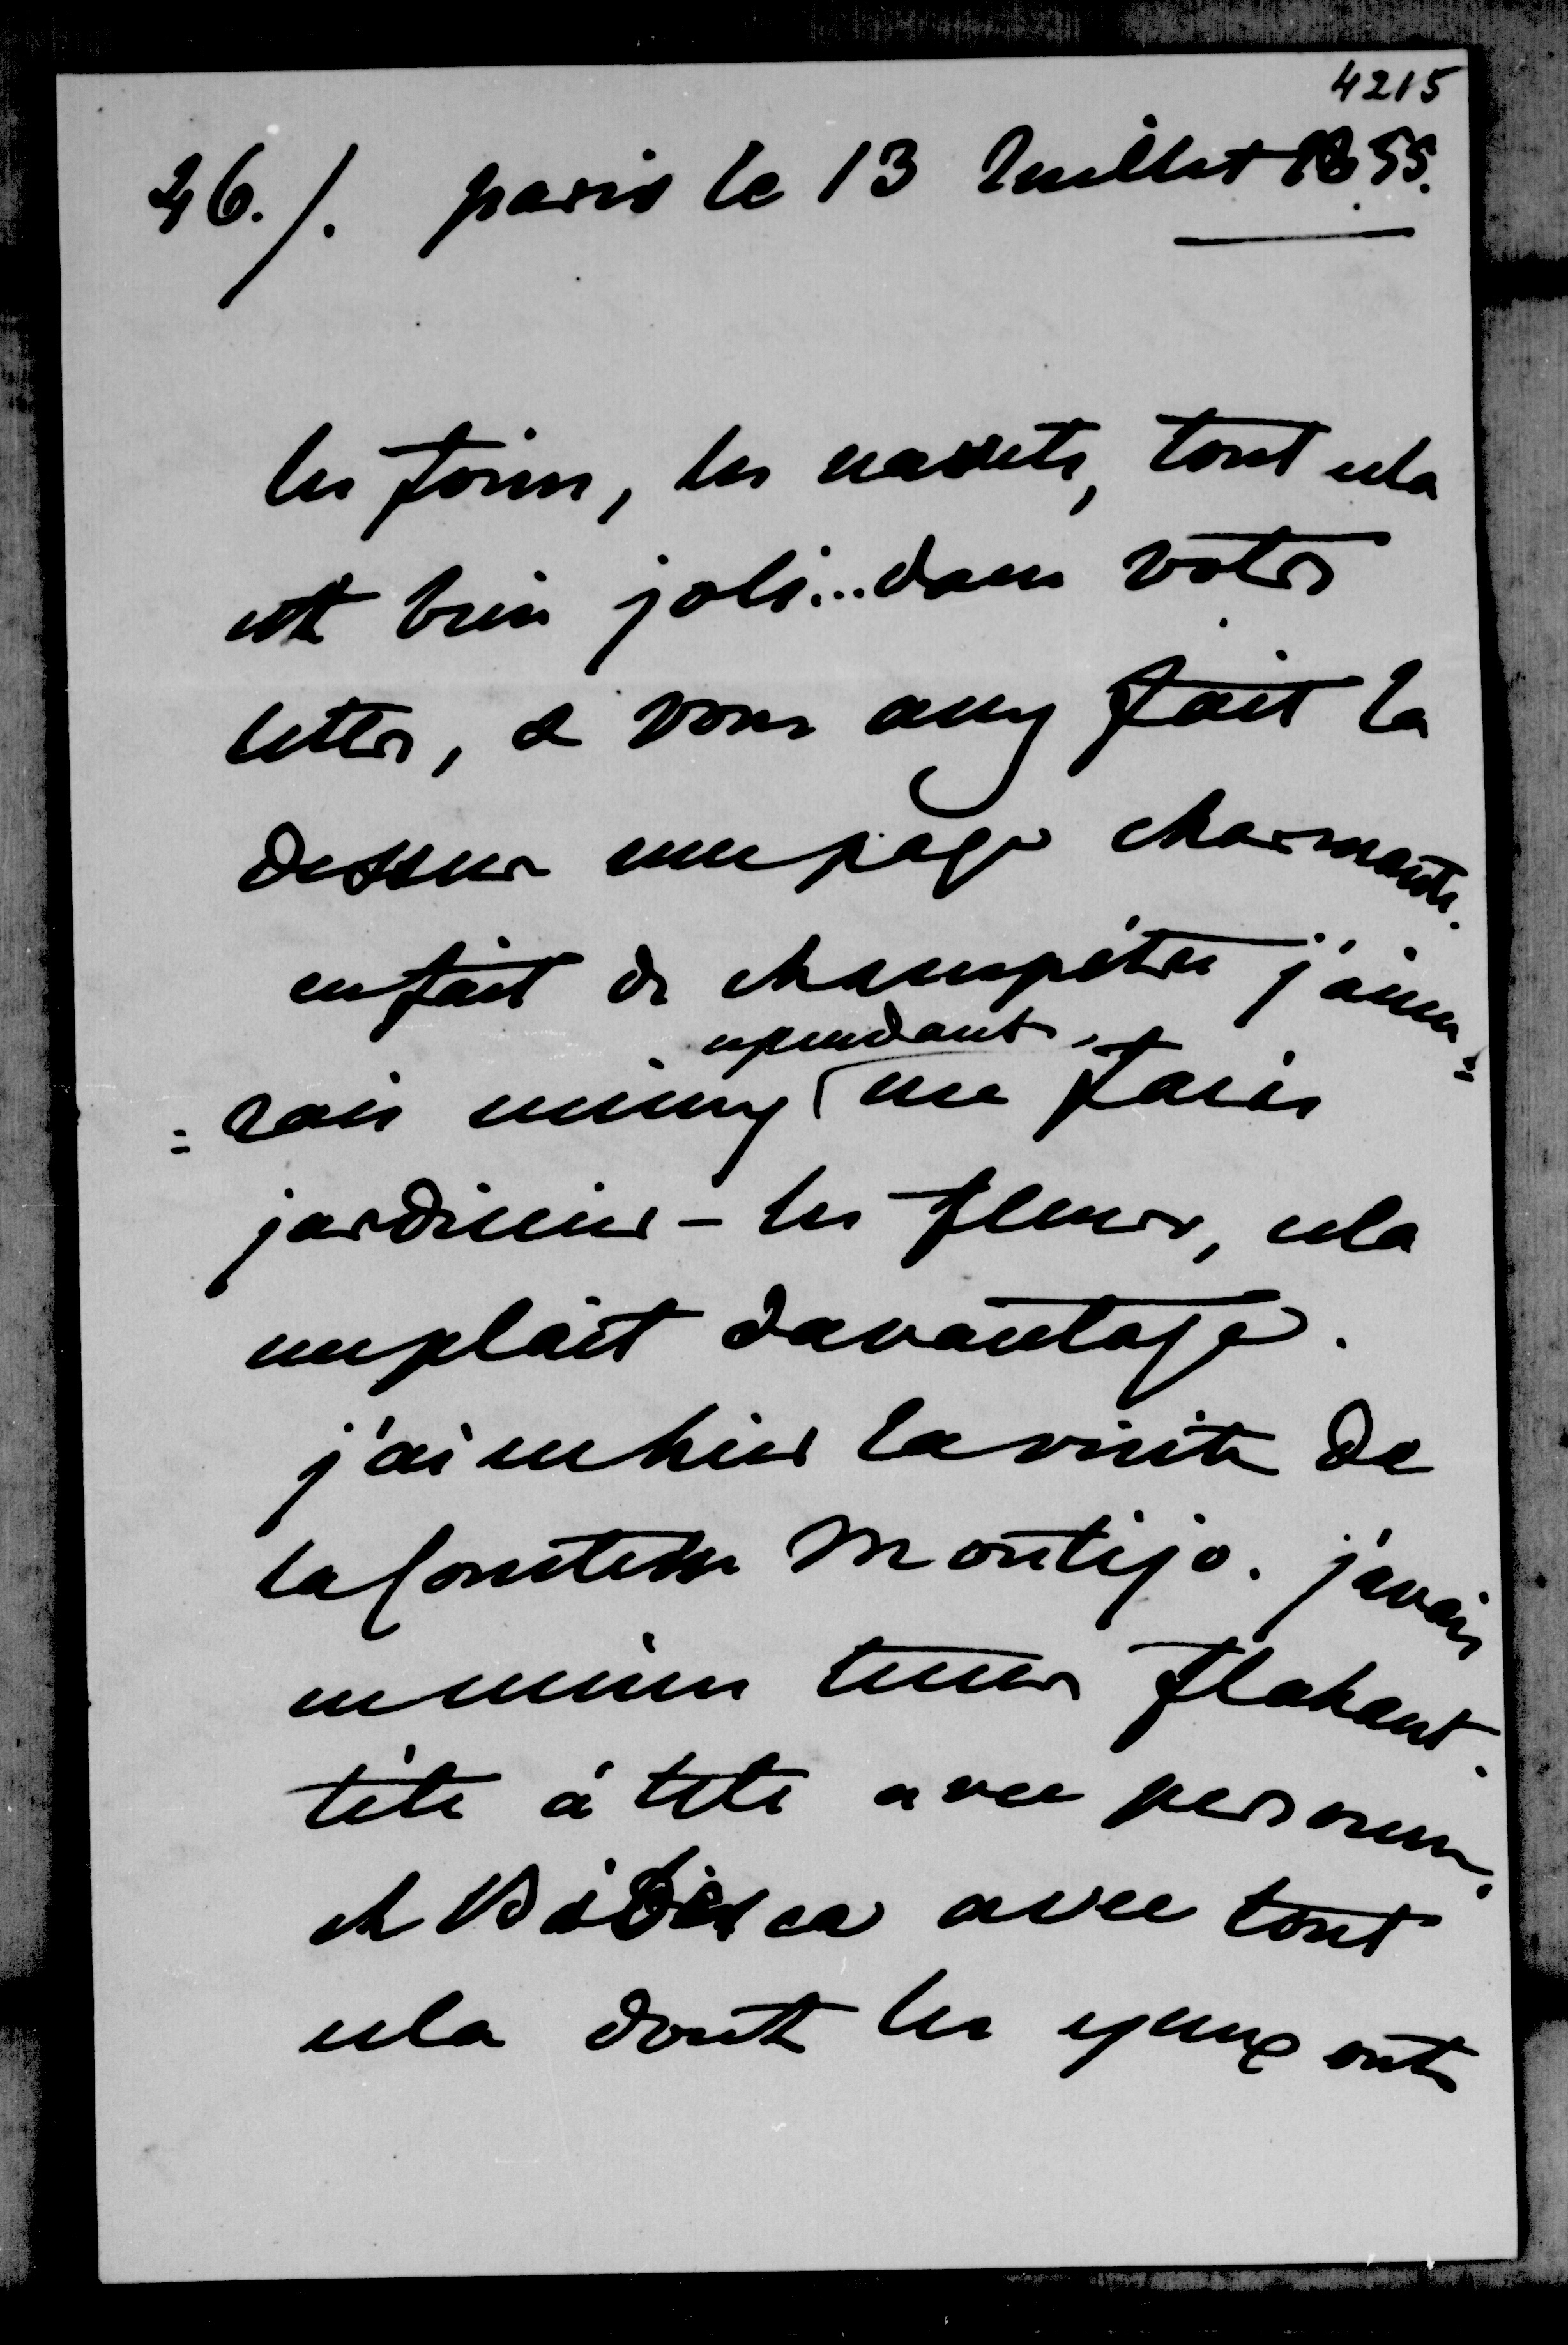 4215
46./. paris le 13 Juillet 1855.
les foins, les navets, tout cela
est bien joli... dans votre
lettre, & vous avez fait là
dessus une page charmante.
en fait de champêtre j'aime=
=rais mieux cependant me faire
jardinier - les fleurs, cela
me plait davantage.
j'ai eu hier la visite de
la Comtesse Montijo. j'avais
eu mieux Flahaut
tête à tête avec personne.
et Bibesca avec tout
cela dont les yeux ont